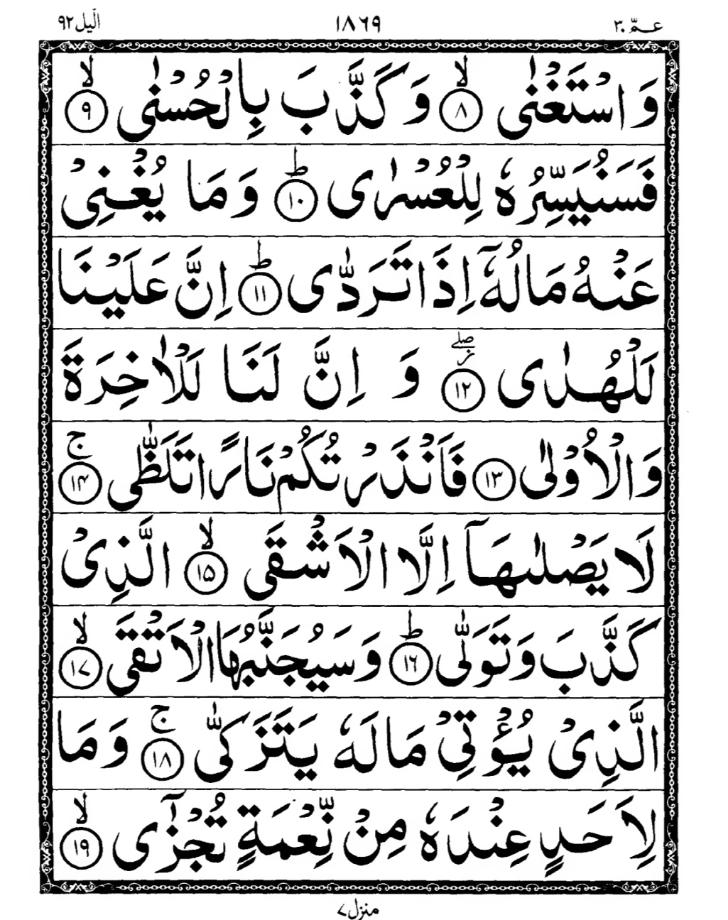 الّيل ٩٢ ١٨٦٩ عـمّ ٣٠
وَاسْتَغْنٰى ۙ‏ ﴿۸﴾ وَكَذَّبَ بِالْحُسْنٰى ۙ‏ ﴿۹﴾
فَسَنُيَسِّرُهٗ لِلْعُسْرٰى ؕ‏ ﴿۱۰﴾ وَمَا يُغْنِىْ
عَنْهُ مَالُهٗۤ اِذَا تَرَدّٰى ؕ‏ ﴿۱۱﴾ اِنَّ عَلَيْنَا
لَلْهُدٰى ۖ ‏ ﴿۱۲﴾ وَ اِنَّ لَنَا لَلْاٰخِرَةَ
وَالْاُوْلٰى‏ ﴿۱۳﴾ فَاَنْذَرْتُكُمْ نَارًا تَلَظّٰى‌ ۚ‏ ﴿۱۴﴾
لَا يَصْلٰٮهَاۤ اِلَّا الْاَشْقَى ۙ‏ ﴿۱۵﴾ الَّذِىْ
كَذَّبَ وَتَوَلّٰى ؕ‏ ﴿۱۶﴾ وَسَيُجَنَّبُهَا الْاَتْقَى ۙ‏ ﴿۱۷﴾
الَّذِىْ يُؤْتِىْ مَالَهٗ يَتَزَكّٰى‌ ۚ‏ ﴿۱۸﴾ وَمَا
لِاَحَدٍ عِنْدَهٗ مِنْ نِّعْمَةٍ تُجْزٰٓى ۙ‏ ﴿۱۹﴾
منزل ٧